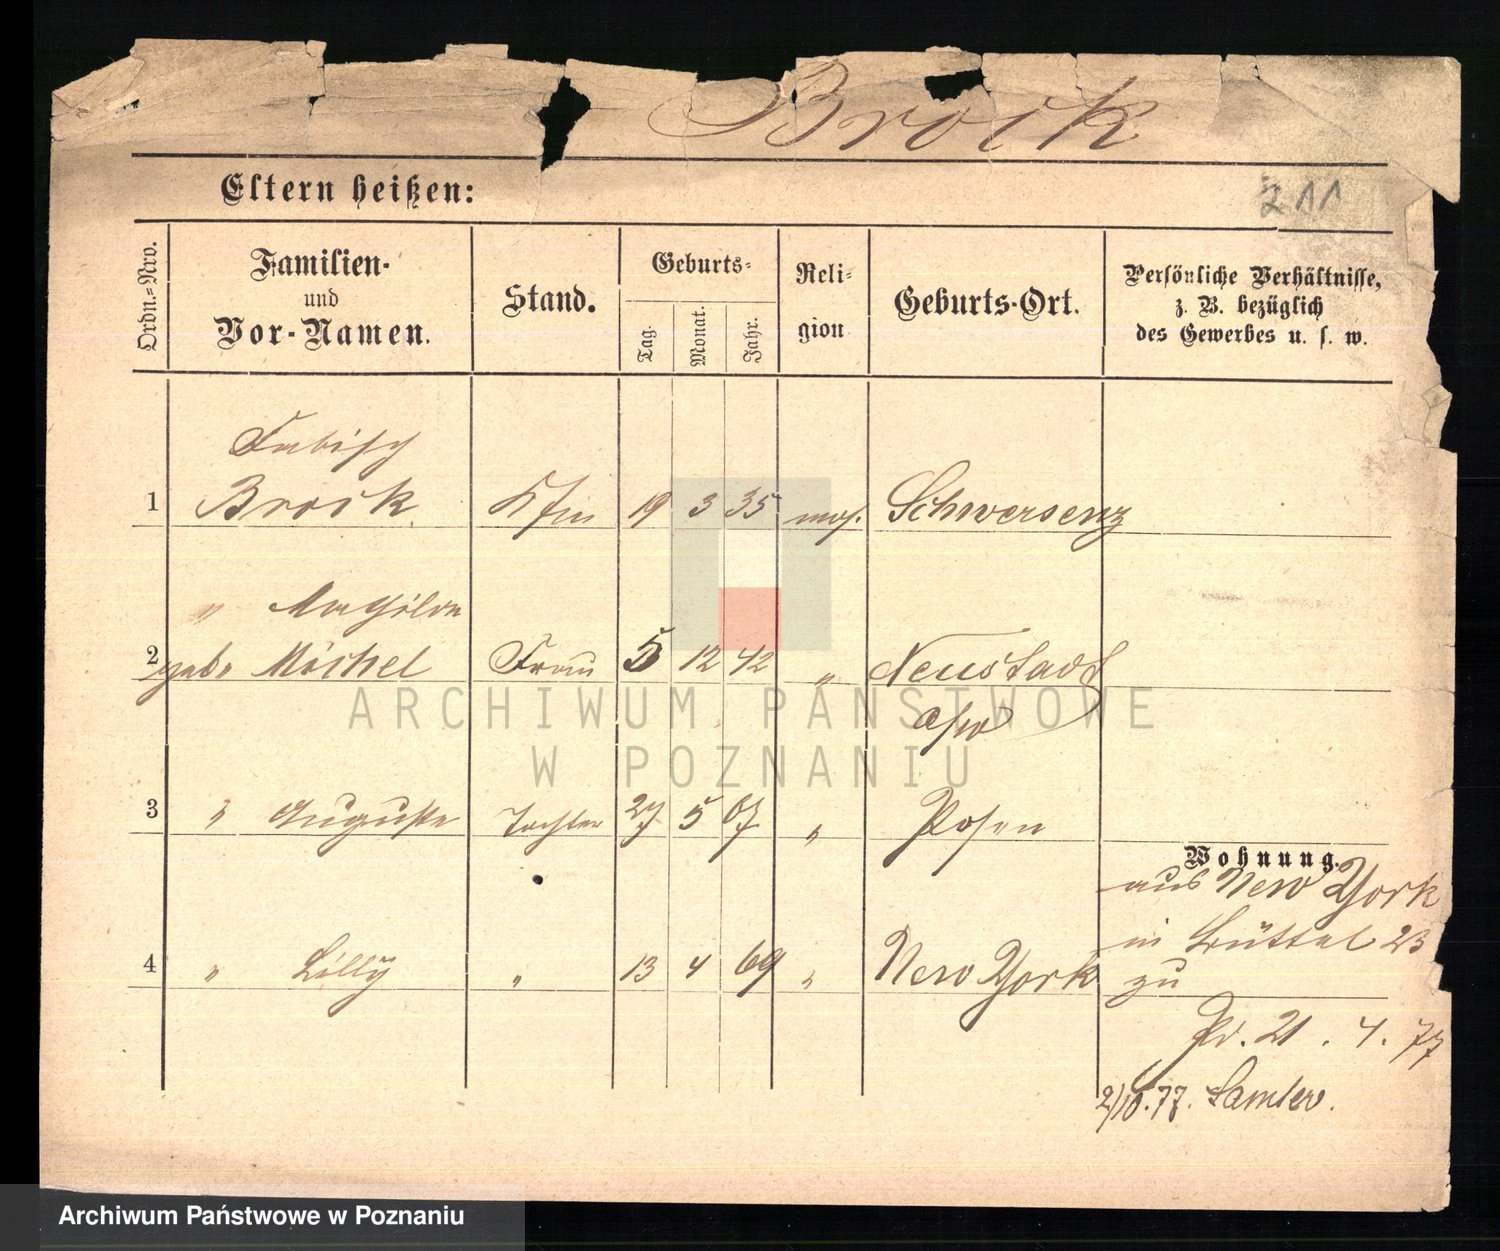 Brock
Eltern heißen:
211
Ordn.-Nro.
Familien-
und
Vor-Namen.
Stand.
Geburts-
Tag.
Monat.
Jahr.
Reli-
gion
Geburts-Ort.
Persönliche Verhältnisse,
z. B. bezüglich
des Gewerbes u. s. w.
Fabisch
1 Brock Kfm 19 3 35 mos. Schwersenz
" Mathilde
2 gebe Möschel Frau 5 12 42 " Neustadt
a/w
3 " Auguste Tochter 27 5 67 " Posen
Wohnung.
aus New York
in Büttel 23
4 " Lilly " 13 4 69 " New York
zu
Pr. 21. 4. 77
2/10.77. Samter.
ARCHIWUM PAŃSTWOWE
W POZNANIU
Archiwum Państwowe w Poznaniu